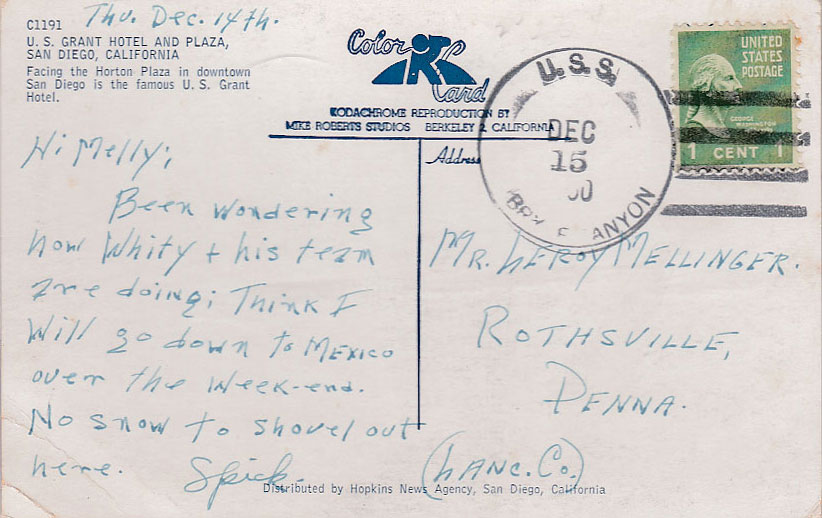 Thu. Dec. 14th.
C1191
U. S. GRANT HOTEL AND PLAZA,
SAN DIEGO, CALIFORNIA
Facing the Horton Plaza in downtown
San Diego is the famous U. S. Grant
Hotel.
Color
Card
KODACHROME REPRODUCTION BY
MIKE ROBERTS STUDIOS BERKELEY 2, CALIFORNIA
U.S.S.
DEC
15
UNITED
STATES
POSTAGE
GEORGE
WASHINGTON
1 CENT 1
Hi Melly;
Been wondering
how Whity + his team
are doing; Think I
Will go down to Mexico
over the Week-end.
No snow to shovel out
here. Spick.
Address
MR. LEROY MELLINGER.
ROTHSVILLE,
PENNA.
(LANC. CO.)
Distributed by Hopkins News Agency, San Diego, California